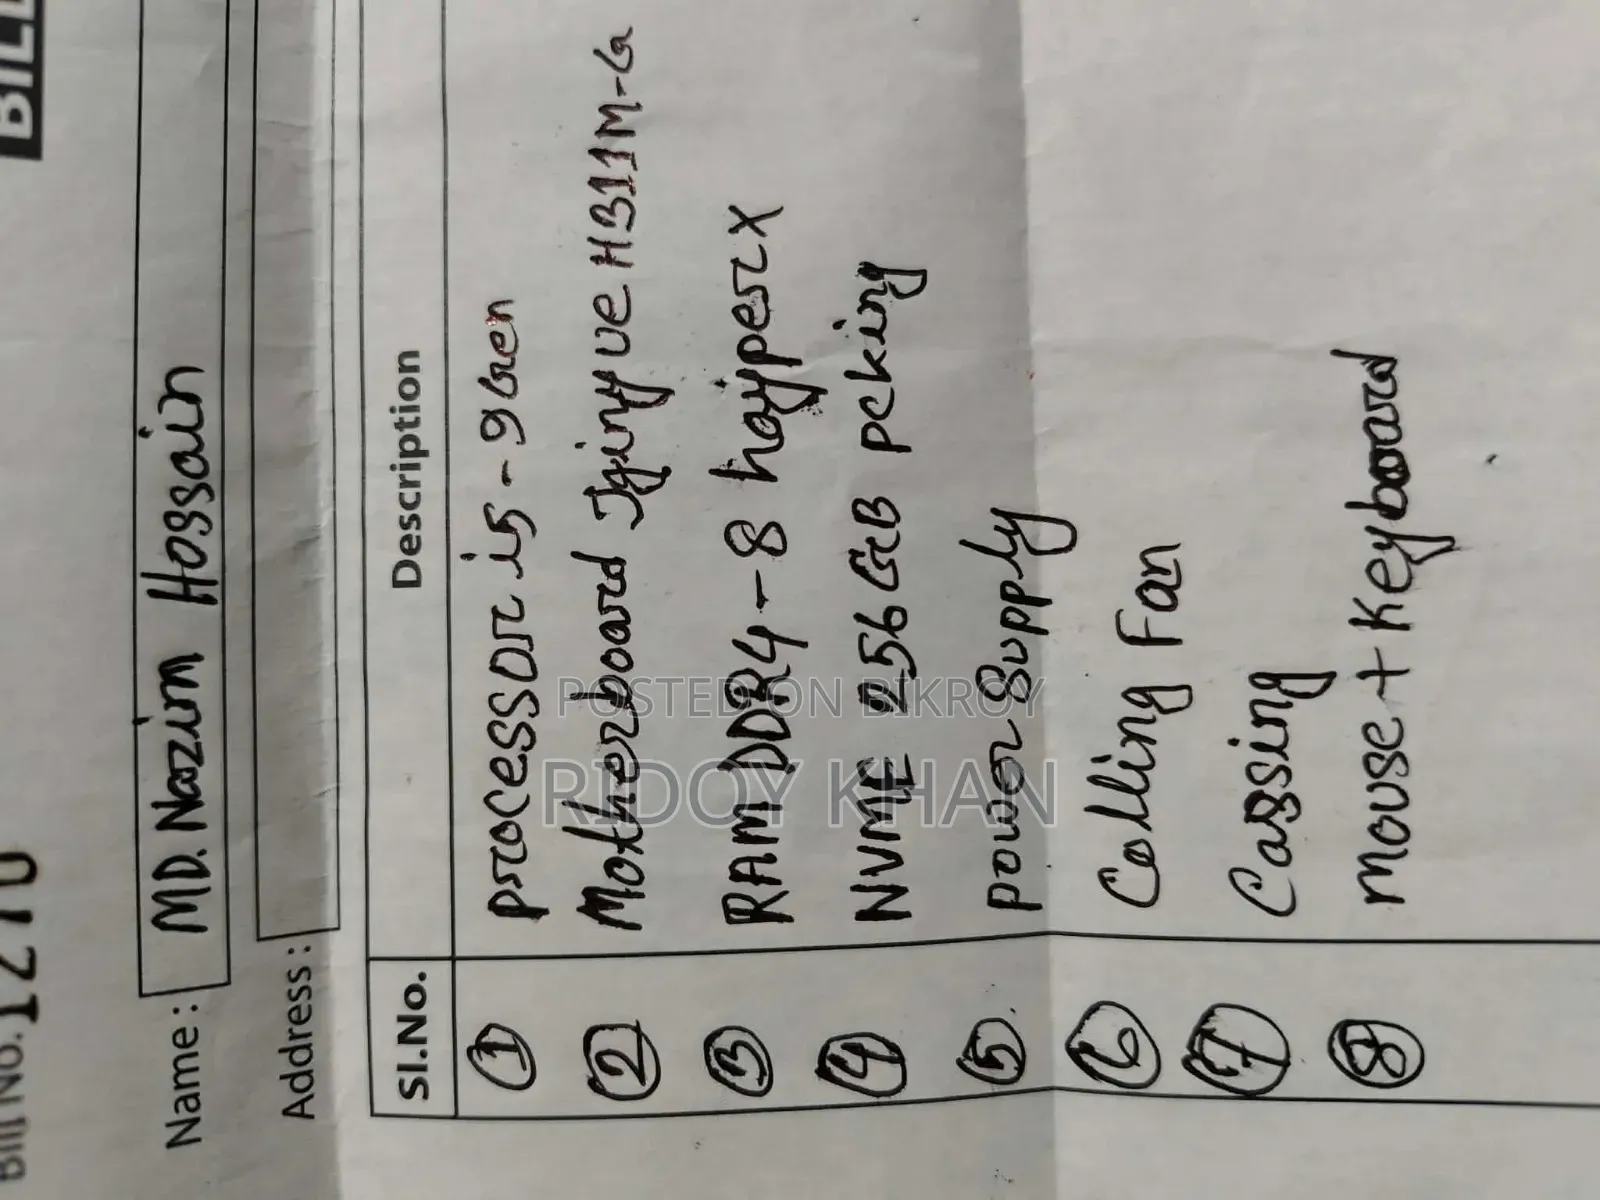 BILL
Bill No. 1270
Name : MD. Nazim Hossain
Address :
Sl.No. Description
1 processor i5 - 9Gen
2 Motherboard Jginyue H311M-G
3 RAM DDR4 - 8 hayper x
4 NVME 256GB pcking
5. power Supply
6 Colling Fan
7 Cassing
8 mouse + Keyboard
POSTED ON BIKROY
RIDOY KHAN